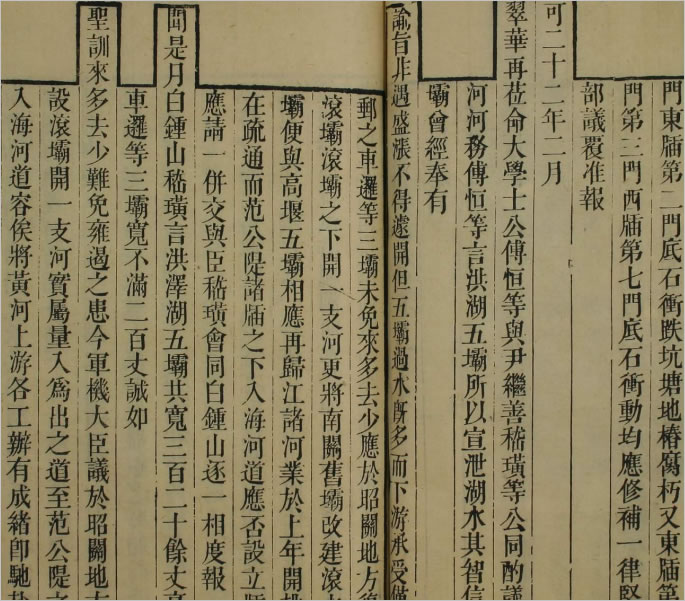 門東牐第二門底石衝跌坑塘地樁腐朽又東牐第
門第三門西牐第七門底石衝動均應修補一律堅
部議覆准報
可二十二年二月
翠華再莅命大學士公傅恒等與尹繼善嵇璜等公同酌議
河河務傅恒等言洪湖五壩所以宣泄湖水其智信
壩曾經奉有
諭旨非遇盛漲不得遽開但五壩過水旣多而下游承受僅
郵之車邏等三壩未免來多去少應於昭關地方
滾壩滾壩之下開一支河更將南關舊壩改建滾
壩便與高堰五壩相應再歸江諸河業於上年開挑
在疏通而范公隄諸牐之下入海河道應否設立牐
應請一併交與臣嵇璜會同白鍾山逐一相度報
聞是月白鍾山嵇璜言洪澤湖五壩共寬三百二十餘丈高
車邏等三壩寬不滿二百丈誠如
聖訓來多去少難免壅遏之患今軍機大臣議於昭關地方
設滾壩開一支河實屬量入爲出之道至范公隄之
入海河道容俟將黃河上游各工辦有成緒卽馳赴